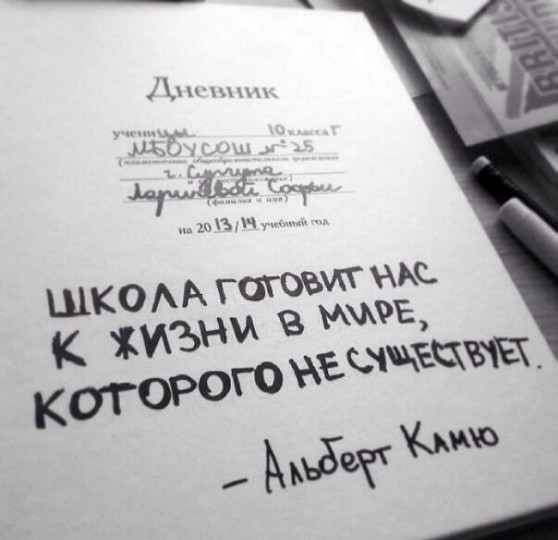 Дневник
ученицы 10 класса Г
МБОУСОШ №25
(наименование общеобразовательного учреждения)
г. Сургута
Ларичевой Софьи
(фамилия и имя)
на 2013/14 учебный год
ШКОЛА ГОТОВИТ НАС
К ЖИЗНИ В МИРЕ,
КОТОРОГО НЕ СУЩЕСТВУЕТ.
– Альберт Камю